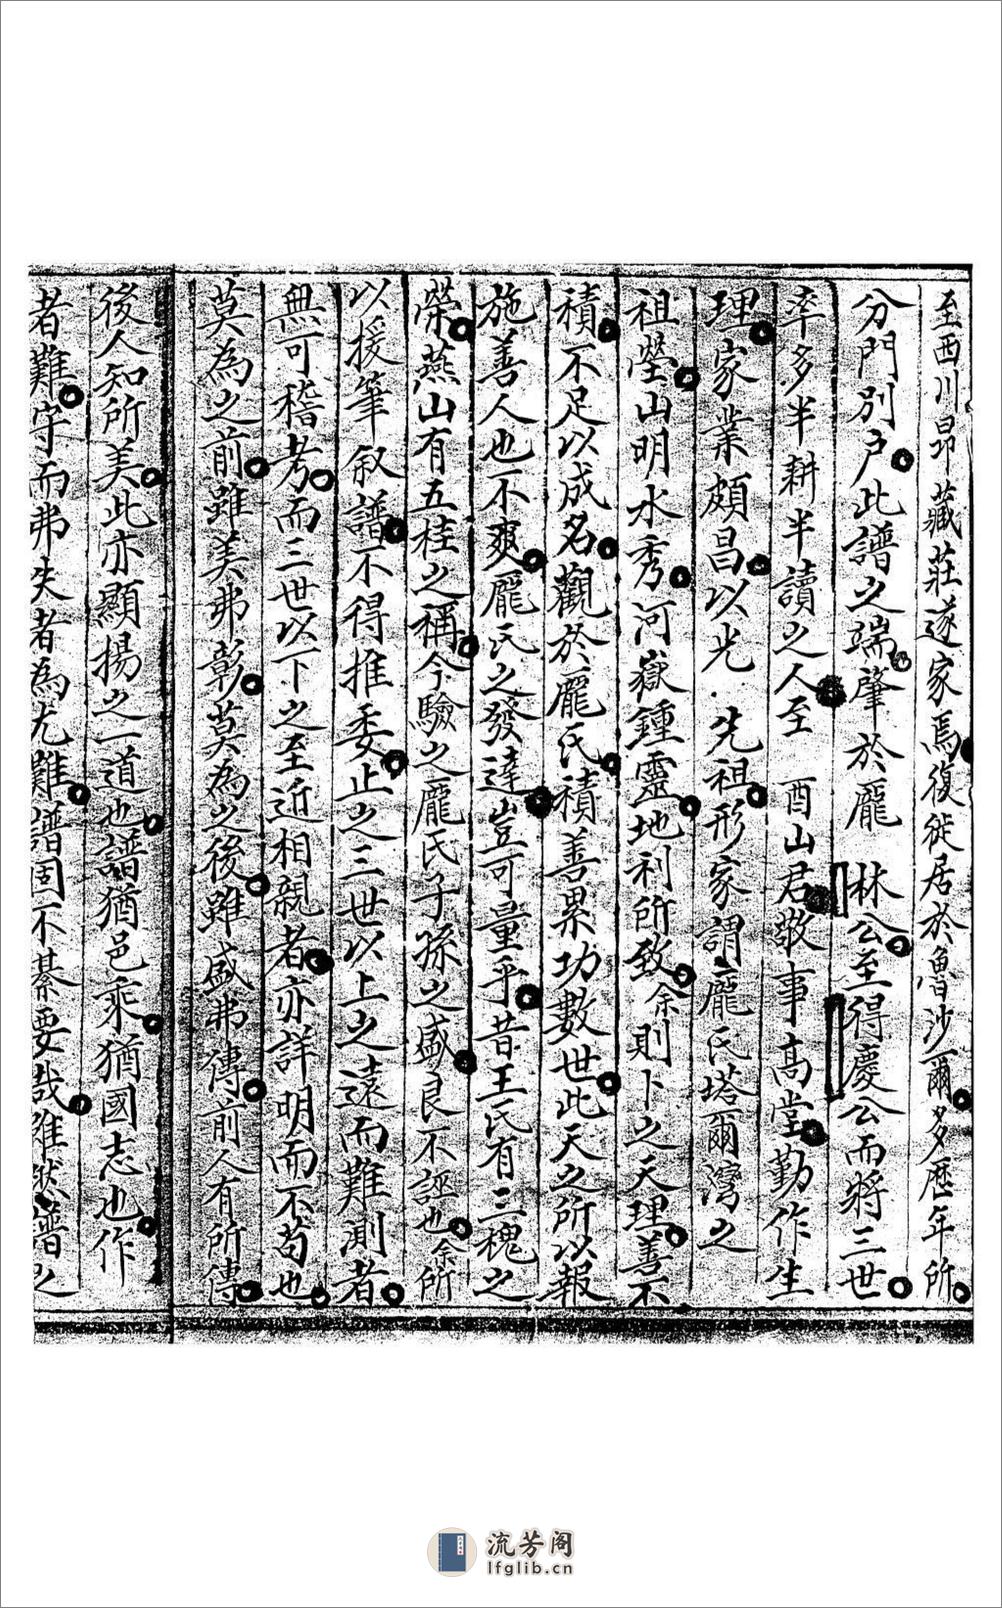 至西川昂藏莊遂家焉復徙居於魯沙爾多歷年所
分門別户此譜之端肇於龐 林公至得慶公而將三世
率多半耕半讀之人至 酉山君敬事高堂勤作生
理家業頗昌以光 先祖形家謂龐氏塔爾灣之
祖塋山明水秀河嶽鍾靈地利所致余則卜之天理善不
積不足以成名觀於龐氏積善累功數世此天之所以報
施善人也不爽龐氏之發達豈可量乎昔王氏有三槐之
榮燕山有五桂之稱今驗之龐氏子孫之盛良不誣也余所
以援筆叙譜不得推委止之三世以上之遠而難測者
無可稽考而三世以下之至近相親者亦詳明而不苟也
莫為之前雖美弗彰莫為之後雖盛弗傳前人有所傳
後人知所美此亦顯揚之一道也譜猶邑乘猶國志也作
者難守而弗失者為尤難譜固不綦要哉雖然譜之
流芳阁
lfglib.cn